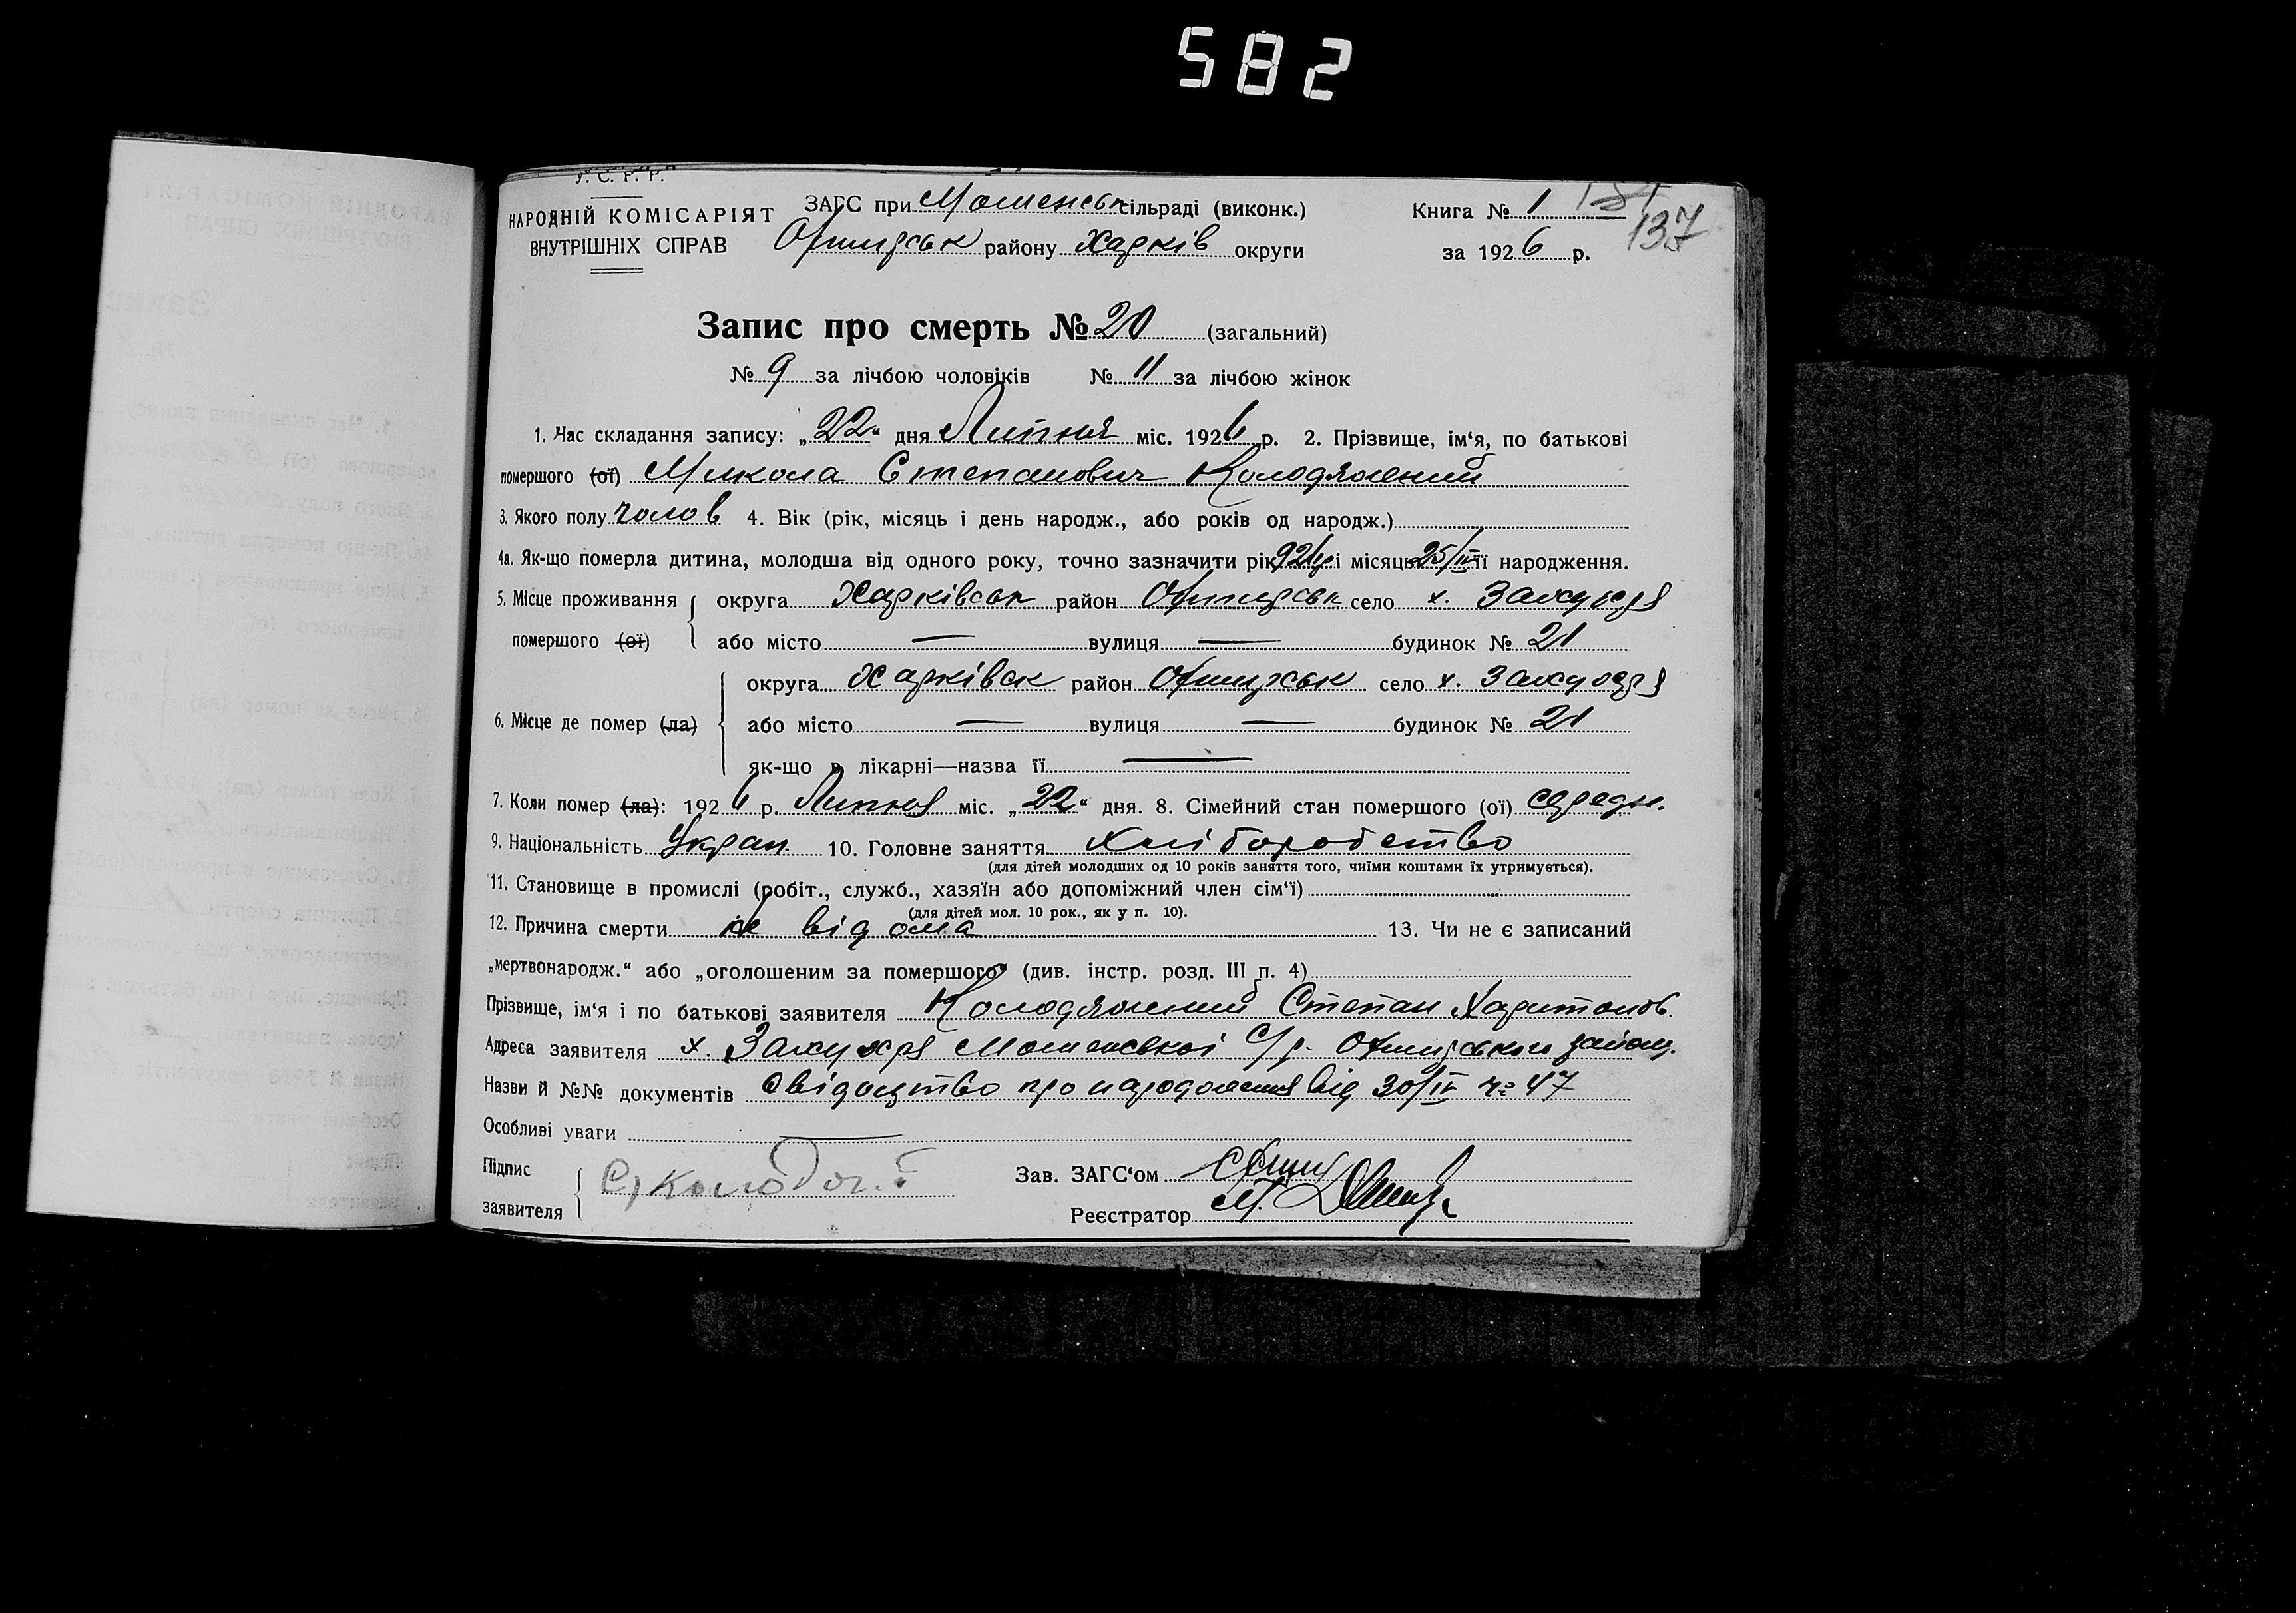 582
У. С. Р. Р.
НАРОДНІЙ КОМІСАРІЯТ
ВНУТРІШНІХ СПРАВ
ЗАГС при Моженськ сільраді (виконк.)
району Харків округи
Книга № 1
137
за 1926 р.
Запис про смерть № 20 (загальний)
№ 9 за лічбою чоловіків № 11 за лічбою жінок
1. Час складання запису: „22“ дня Липня міс. 1926 р. 2. Прізвище, ім‘я, по батькові
помершого (ої) Микола Степанович Колодяжний
3. Якого полу чолов 4. Вік (рік, місяць і день народж., або років од народж.)
4а. Як-що померла дитина, молодша від одного року, точно зазначити рік 926 р і місяць 25/IV її народження.
5. Місце проживання округа Харківськ район село х.
помершого (ої) або місто — вулиця — будинок № 21
округа Харківск район село х.
6. Місце де помер (ла) або місто — вулиця — будинок № 21
як-що в лікарні—назва її —
7. Коли помер (ла): 1926 р. Липня міс. „22“ дня. 8. Сімейний стан помершого (ої) середн.
9. Національність Укран. 10. Головне заняття Хліборобство
(для дітей молодших од 10 років заняття того, чиїми коштами їх утримується).
11. Становище в промислі (робіт., служб., хазяїн або допоміжний член сім‘ї)
(для дітей мол. 10 рок., як у п. 10).
12. Причина смерти не відома 13. Чи не є записаний
„мертвонародж.“ або „оголошеним за помершого“ (див. інстр. розд. III п. 4)
Прізвище, ім‘я і по батькові заявителя Колодяжний Степан Харитонов.
Адреса заявителя х. с/р. району.
Назви й №№ документів Свідоцтво про народження від 30/IV № 47
Особливі уваги —
Підпис
заявителя
Зав. ЗАГС‘ом
Реєстратор